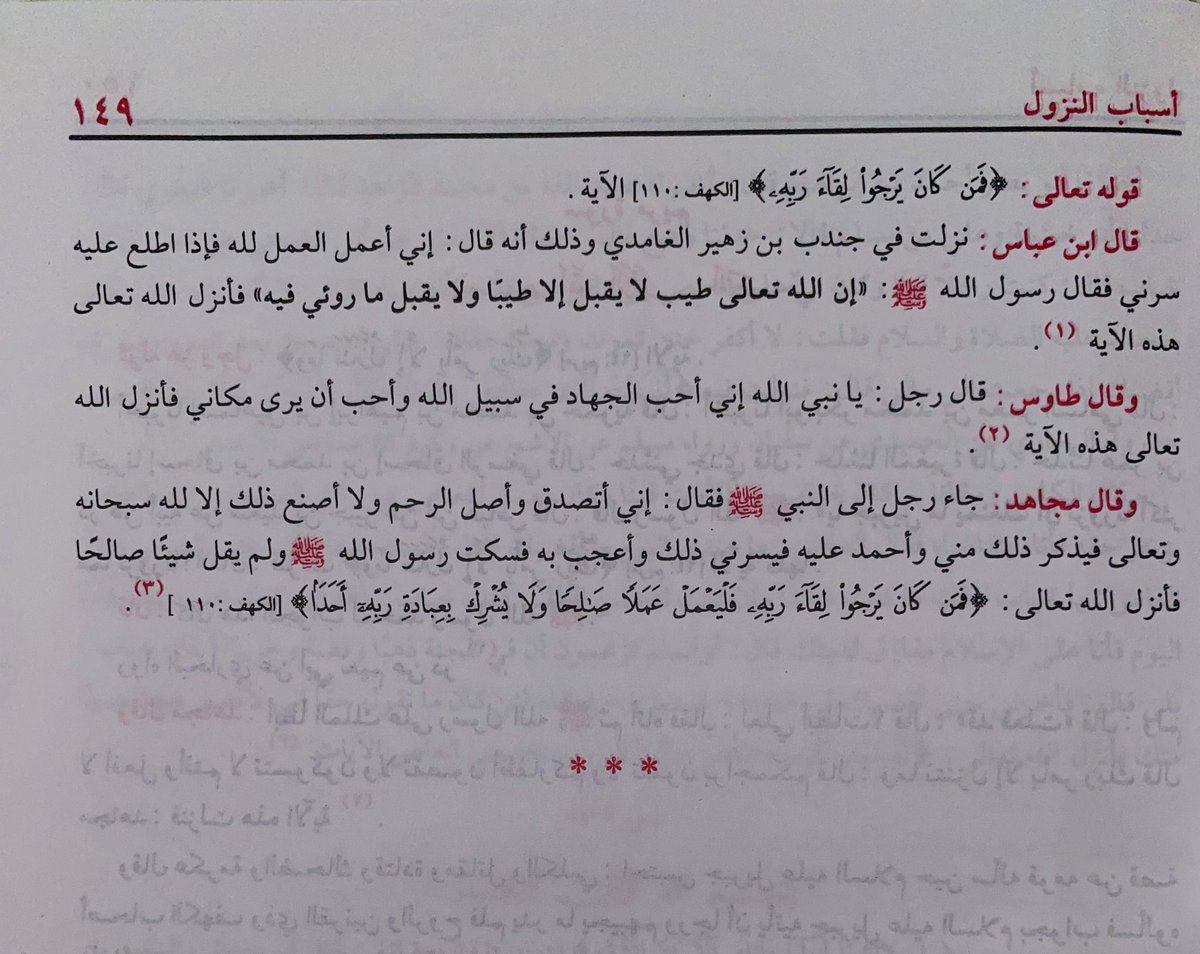 أسباب النزول ١٤٩
قوله تعالى: ﴿فَمَن كَانَ يَرْجُواْ لِقَآءَ رَبِّهِۦ﴾ [الكهف: ١١٠] الآية.
قال ابن عباس: نزلت في جندب بن زهير الغامدي وذلك أنه قال: إني أعمل العمل لله فإذا اطلع عليه
سرني فقال رسول الله ﷺ: «إن الله تعالى طيب لا يقبل إلا طيبًا ولا يقبل ما روئي فيه» فأنزل الله تعالى
هذه الآية (١).
وقال طاوس: قال رجل: يا نبي الله إني أحب الجهاد في سبيل الله وأحب أن يرى مكاني فأنزل الله
تعالى هذه الآية (٢).
وقال مجاهد: جاء رجل إلى النبي ﷺ فقال: إني أتصدق وأصل الرحم ولا أصنع ذلك إلا لله سبحانه
وتعالى فيذكر ذلك مني وأحمد عليه فيسرني ذلك وأعجب به فسكت رسول الله ﷺ ولم يقل شيئًا صالحًا
فأنزل الله تعالى: ﴿فَمَن كَانَ يَرْجُواْ لِقَآءَ رَبِّهِۦ فَلْيَعْمَلْ عَمَلًا صَٰلِحًا وَلَا يُشْرِكْ بِعِبَادَةِ رَبِّهِۦٓ أَحَدَۢا﴾ [الكهف: ١١٠] (٣).
* * *